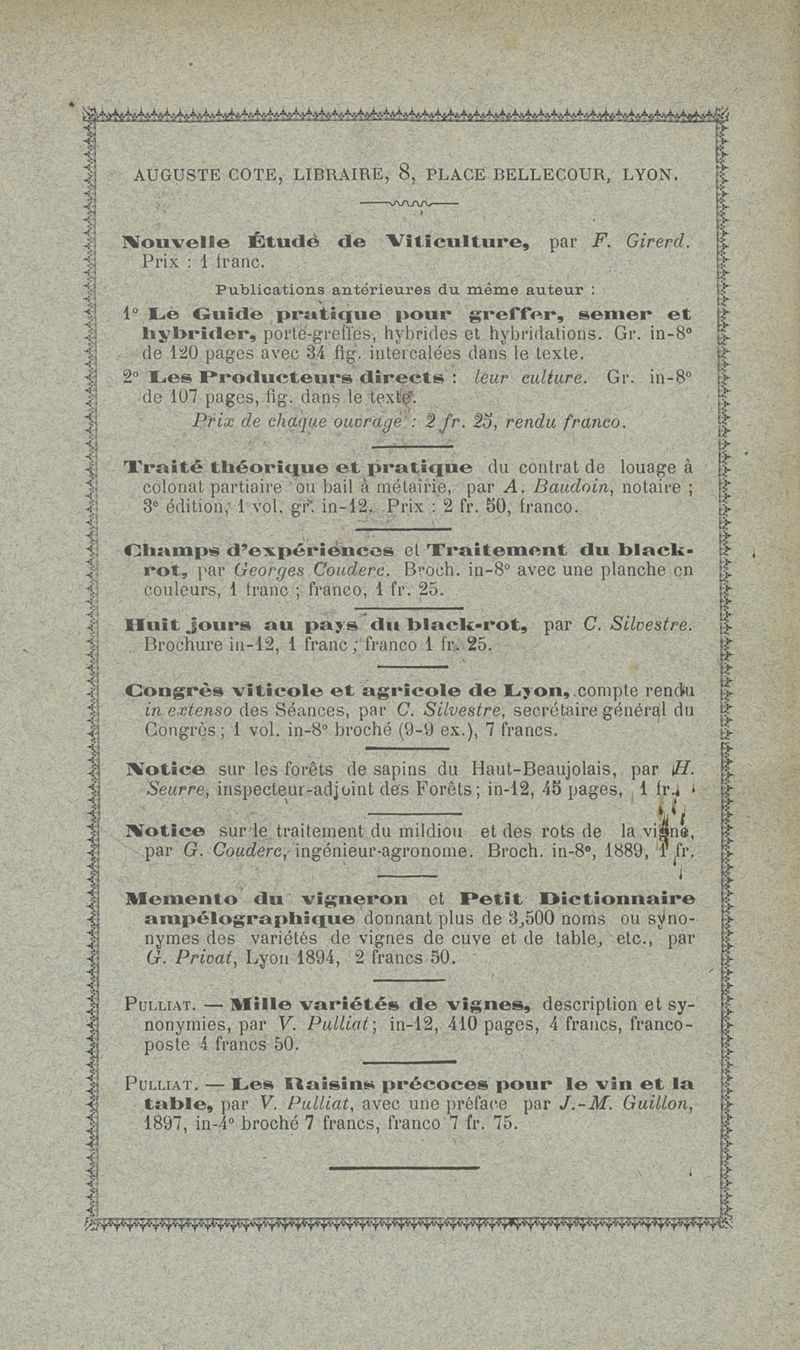 AUGUSTE COTE, LIBRAIRE, 8, PLACE BELLECOUR, LYON.
Nouvelle Étude de Viticulture, par F. Girerd.
Prix : 1 franc.
Publications antérieures du même auteur :
1° Le Guide pratique pour greffer, semer et
hybrider, porte-greffes, hybrides et hybridations. Gr. in-8°
de 120 pages avec 34 fig. intercalées dans le texte.
2° Les Producteurs directs : leur culture. Gr. in-8°
de 107 pages, fig. dans le texte.
Prix de chaque ouvrage : 2 fr. 25, rendu franco.
Traité théorique et pratique du contrat de louage à
colonat partiaire ou bail à métairie, par A. Baudoin, notaire ;
3e édition, 1 vol. gr. in-12. Prix : 2 fr. 50, franco.
Champs d'expériences et Traitement du black-
rot, par Georges Couderc. Broch. in-8° avec une planche en
couleurs, 1 franc ; franco, 1 fr. 25.
Huit jours au pays du black-rot, par C. Silvestre.
Brochure in-12, 1 franc ; franco 1 fr. 25.
Congrès viticole et agricole de Lyon, compte rendu
in extenso des Séances, par C. Silvestre, secrétaire général du
Congrès ; 1 vol. in-8° broché (9-9 ex.), 7 francs.
Notice sur les forêts de sapins du Haut-Beaujolais, par H.
Seurre, inspecteur-adjoint des Forêts ; in-12, 45 pages, 1 fr.
Notice sur le traitement du mildiou et des rots de la vigne,
par G. Couderc, ingénieur-agronome. Broch. in-8°, 1889, 1 fr.
Memento du vigneron et Petit Dictionnaire
ampélographique donnant plus de 3,500 noms ou syno-
nymes des variétés de vignes de cuve et de table, etc., par
G. Privat, Lyon 1894, 2 francs 50.
PULLIAT. — Mille variétés de vignes, description et sy-
nonymies, par V. Pulliat ; in-12, 410 pages, 4 francs, franco-
poste 4 francs 50.
PULLIAT. — Les Raisins précoces pour le vin et la
table, par V. Pulliat, avec une préface par J.-M. Guillon,
1897, in-4° broché 7 francs, franco 7 fr. 75.